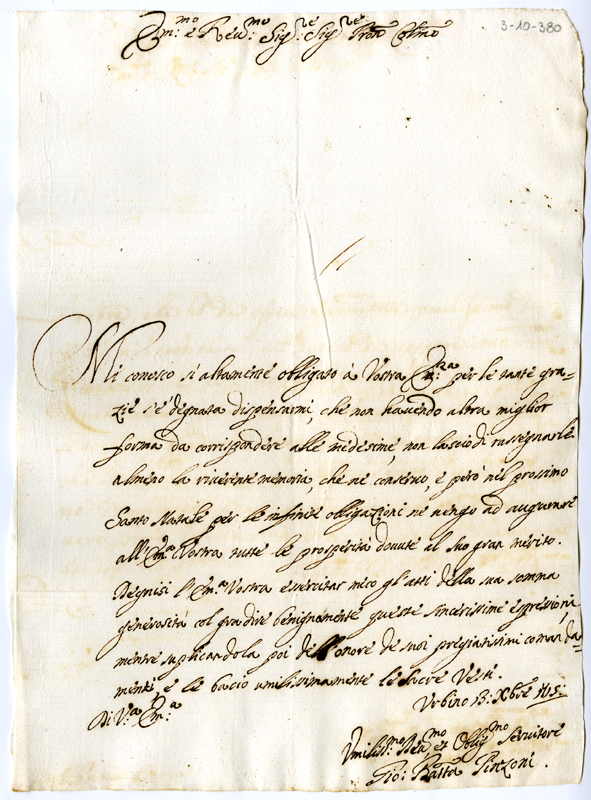 3-10-380
Em:mo e Reu:mo Sig:re Sig:re Pron Colmo
Mi conosco sì altamente obbligato à Vostra Em:za per le tante gra=
zie s'è degnata dispensarmi, che non hauendo altra miglior
forma da corrispondere alle medesime, non lascio di rassegnarle
almeno la riuerente memoria, che ne conseruo, e però nel prossimo
Santo Natale per le infinite obligazioni ne uengo ad augurare
all'Em:a Vostra tutte le prosperità douute al suo gran merito.
Degnisi l'Em:a Vostra esercitar meco gl'atti della sua somma
generosità col gradire benignamente queste sincerissime espressioni,
mentre suplicandola poi dell'onore de suoi pregiatissimi comanda=
menti, e le bacio umilissimamente le Sacre Vesti.
Di V:a Em:a
Urbino 13: Xbre
Umiliss:mo Deu:mo et Oblig:mo Seruitore
Gio: Batta Pinzoni.